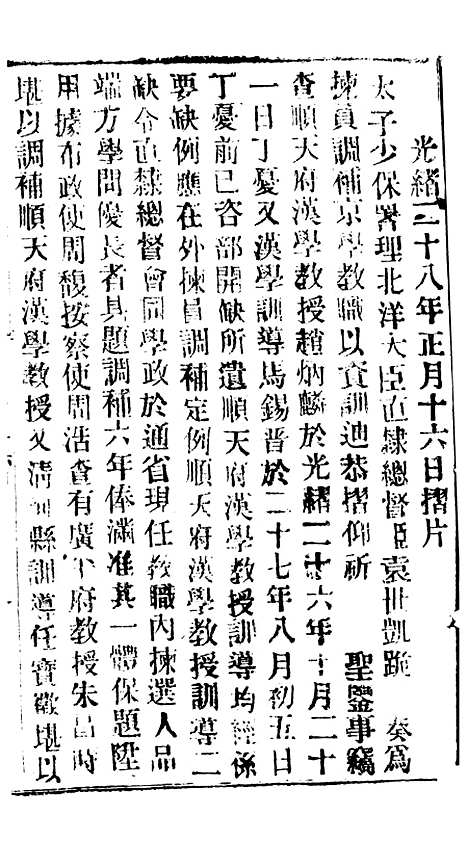 光緒二十八年正月十六日摺片
太子少保署理北洋大臣直隸總督臣袁世凱跪　奏爲
揀員調補京學教職以資訓迪恭摺仰祈　聖鑒事竊
查順天府漢學教授趙炳麟於光緒二十六年十月二十
一日丁憂又漢學訓導馬錫晋於二十七年八月初五日
丁憂前已咨部開缺所遺順天府漢學教授訓導均經係
要缺例應在外揀員調補定例順天府漢學教授訓導二
缺令直隸總督會同學政於通省現任教職內揀選人品
端方學問優長者具題調補六年俸滿准其一體保題陞
用據布政使周馥按察使周浩查有廣平府教授朱昌時
堪以調補順天府漢學教授又清河縣訓導任寶徵堪以